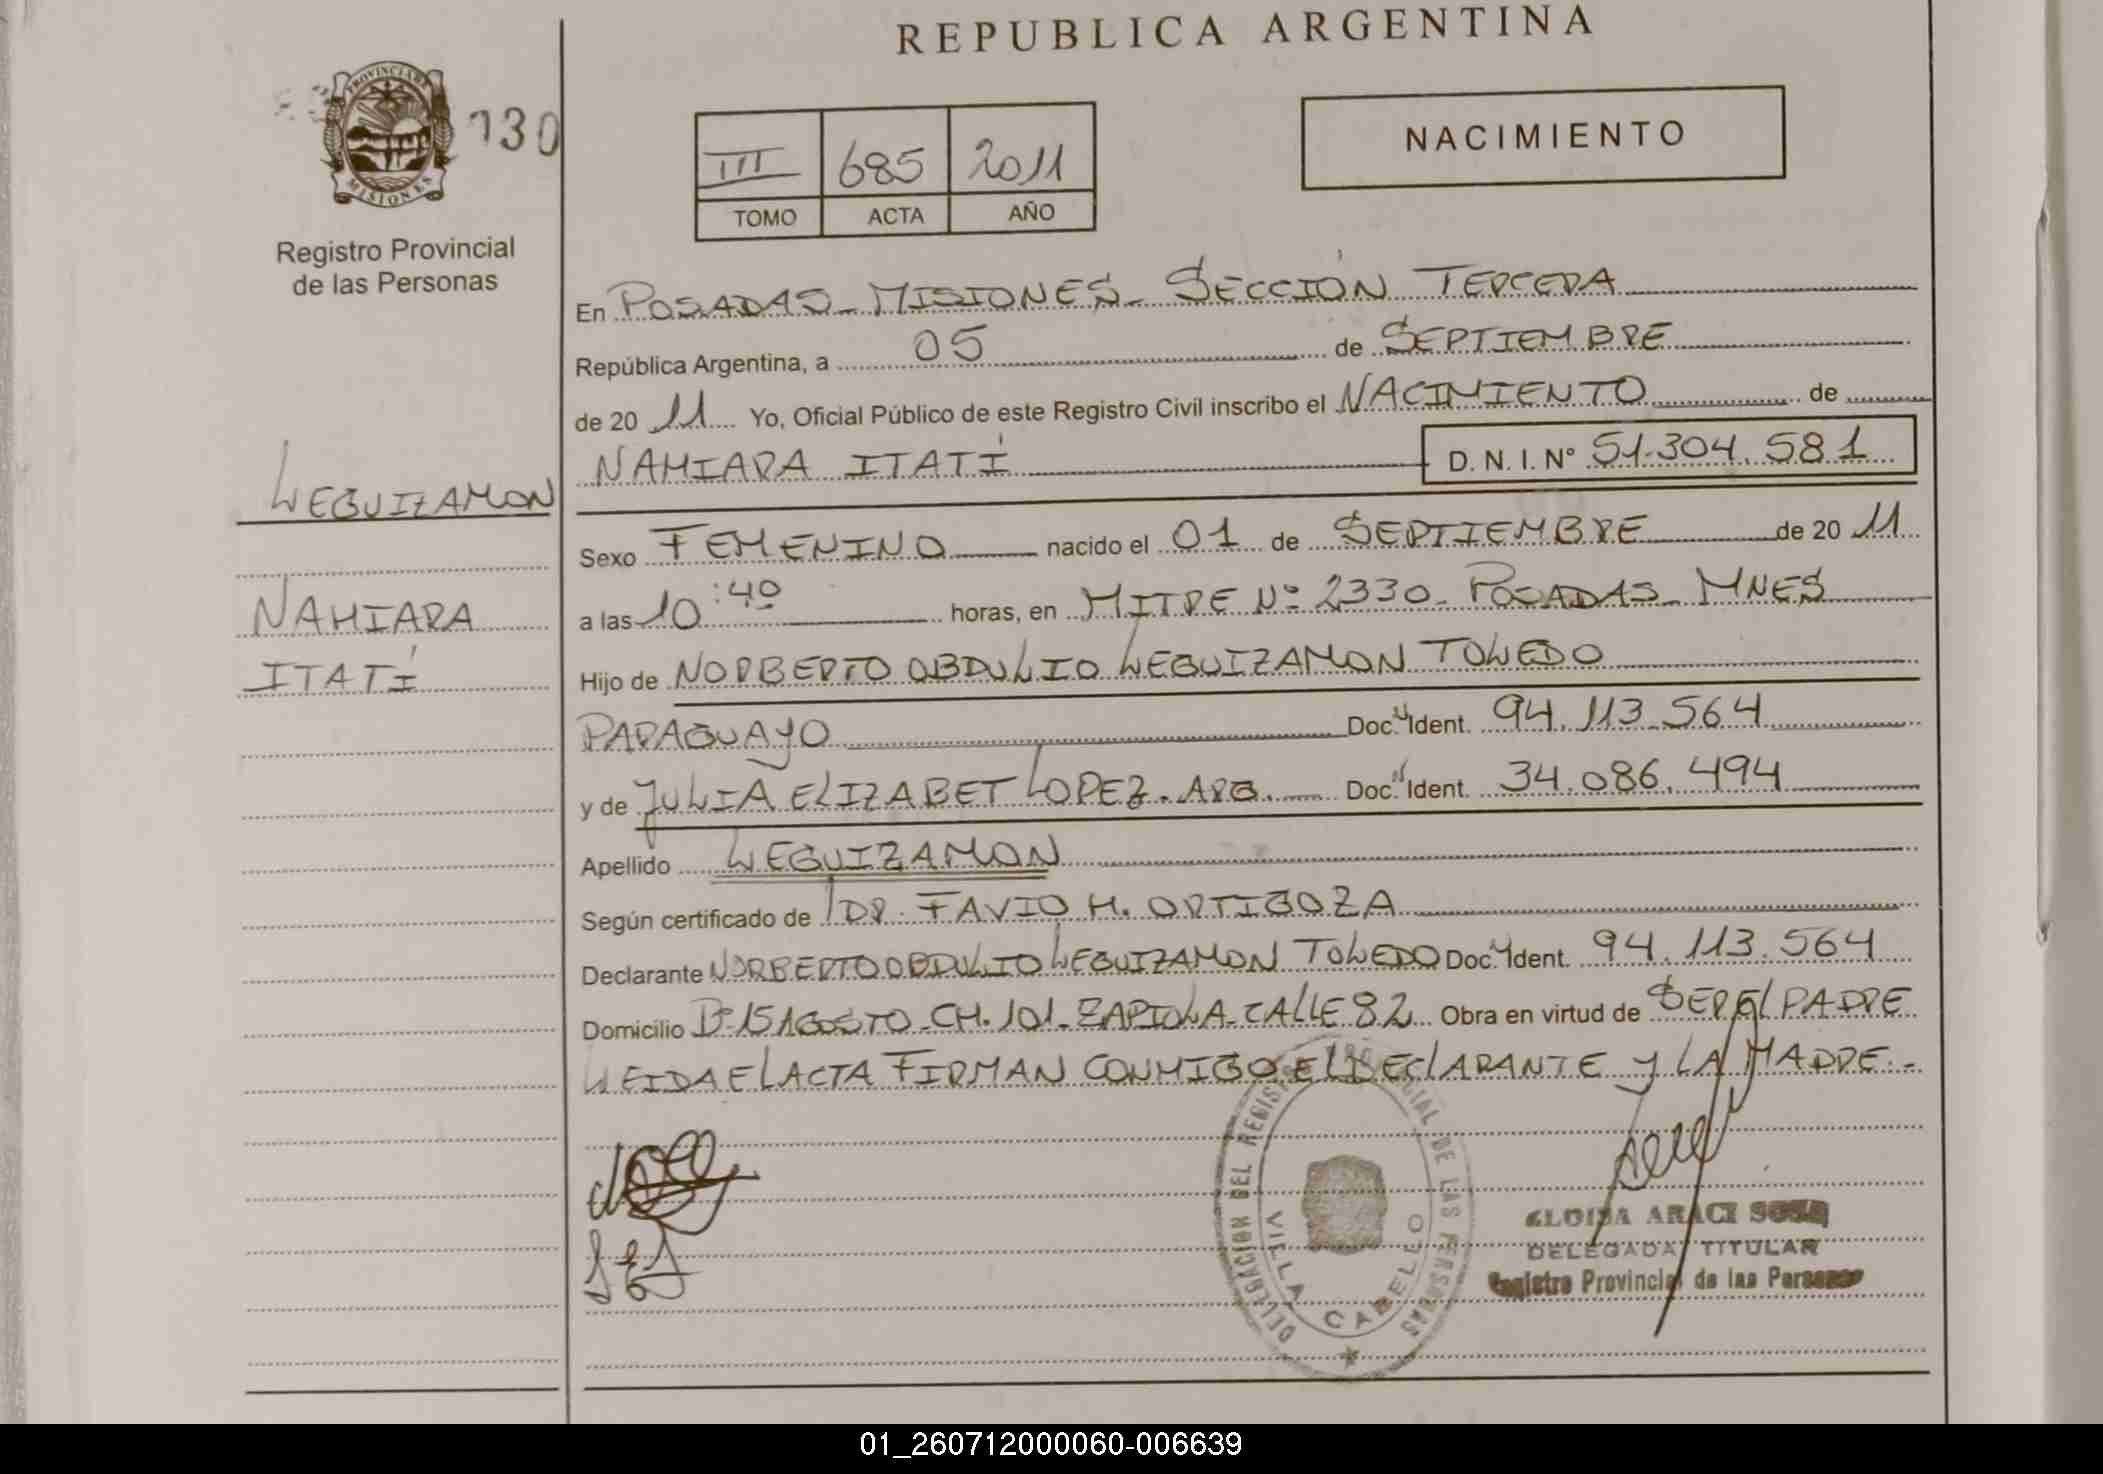 REPUBLICA ARGENTINA
PROVINCIA DE
MISIONES
130
Registro Provincial
de las Personas
III 685 2011
TOMO ACTA AÑO
NACIMIENTO
En POSADAS - MISIONES - SECCIÓN TERCERA
República Argentina, a 05 de SEPTIEMBRE
de 20 11 Yo, Oficial Público de este Registro Civil inscribo el NACIMIENTO de
NAHIARA ITATÍ D. N. I. Nº 51.304.581
LEGUIZAMON
NAHIARA
ITATÍ
Sexo FEMENINO nacido el 01 de SEPTIEMBRE de 20 11
a las 10:40 horas, en MITRE Nº 2330 - POSADAS - MNES
Hijo de NORBERTO OBDULIO LEGUIZAMON TOLEDO
PARAGUAYO Doc. Ident. 94.113.564
y de JULIA ELIZABET LOPEZ. ARG. Doc. Ident. 34.086.494
Apellido LEGUIZAMON
Según certificado de DR. FAVIO H. ORTIGOZA
Declarante NORBERTO OBDULIO LEGUIZAMON TOLEDO Doc. Ident. 94.113.564
Domicilio Bº 15 AGOSTO - CH. 101 - ZAPIOLA - CALLE 82 Obra en virtud de SER EL PADRE
LEIDA EL ACTA FIRMAN CONMIGO EL DECLARANTE Y LA MADRE.-
DELEGACION DEL REGISTRO PROVINCIAL DE LAS PERSONAS
VILLA CABELLO
ELOISA ARACI SOSA
DELEGADA TITULAR
Registro Provincial de las Personas
01_260712000060-006639